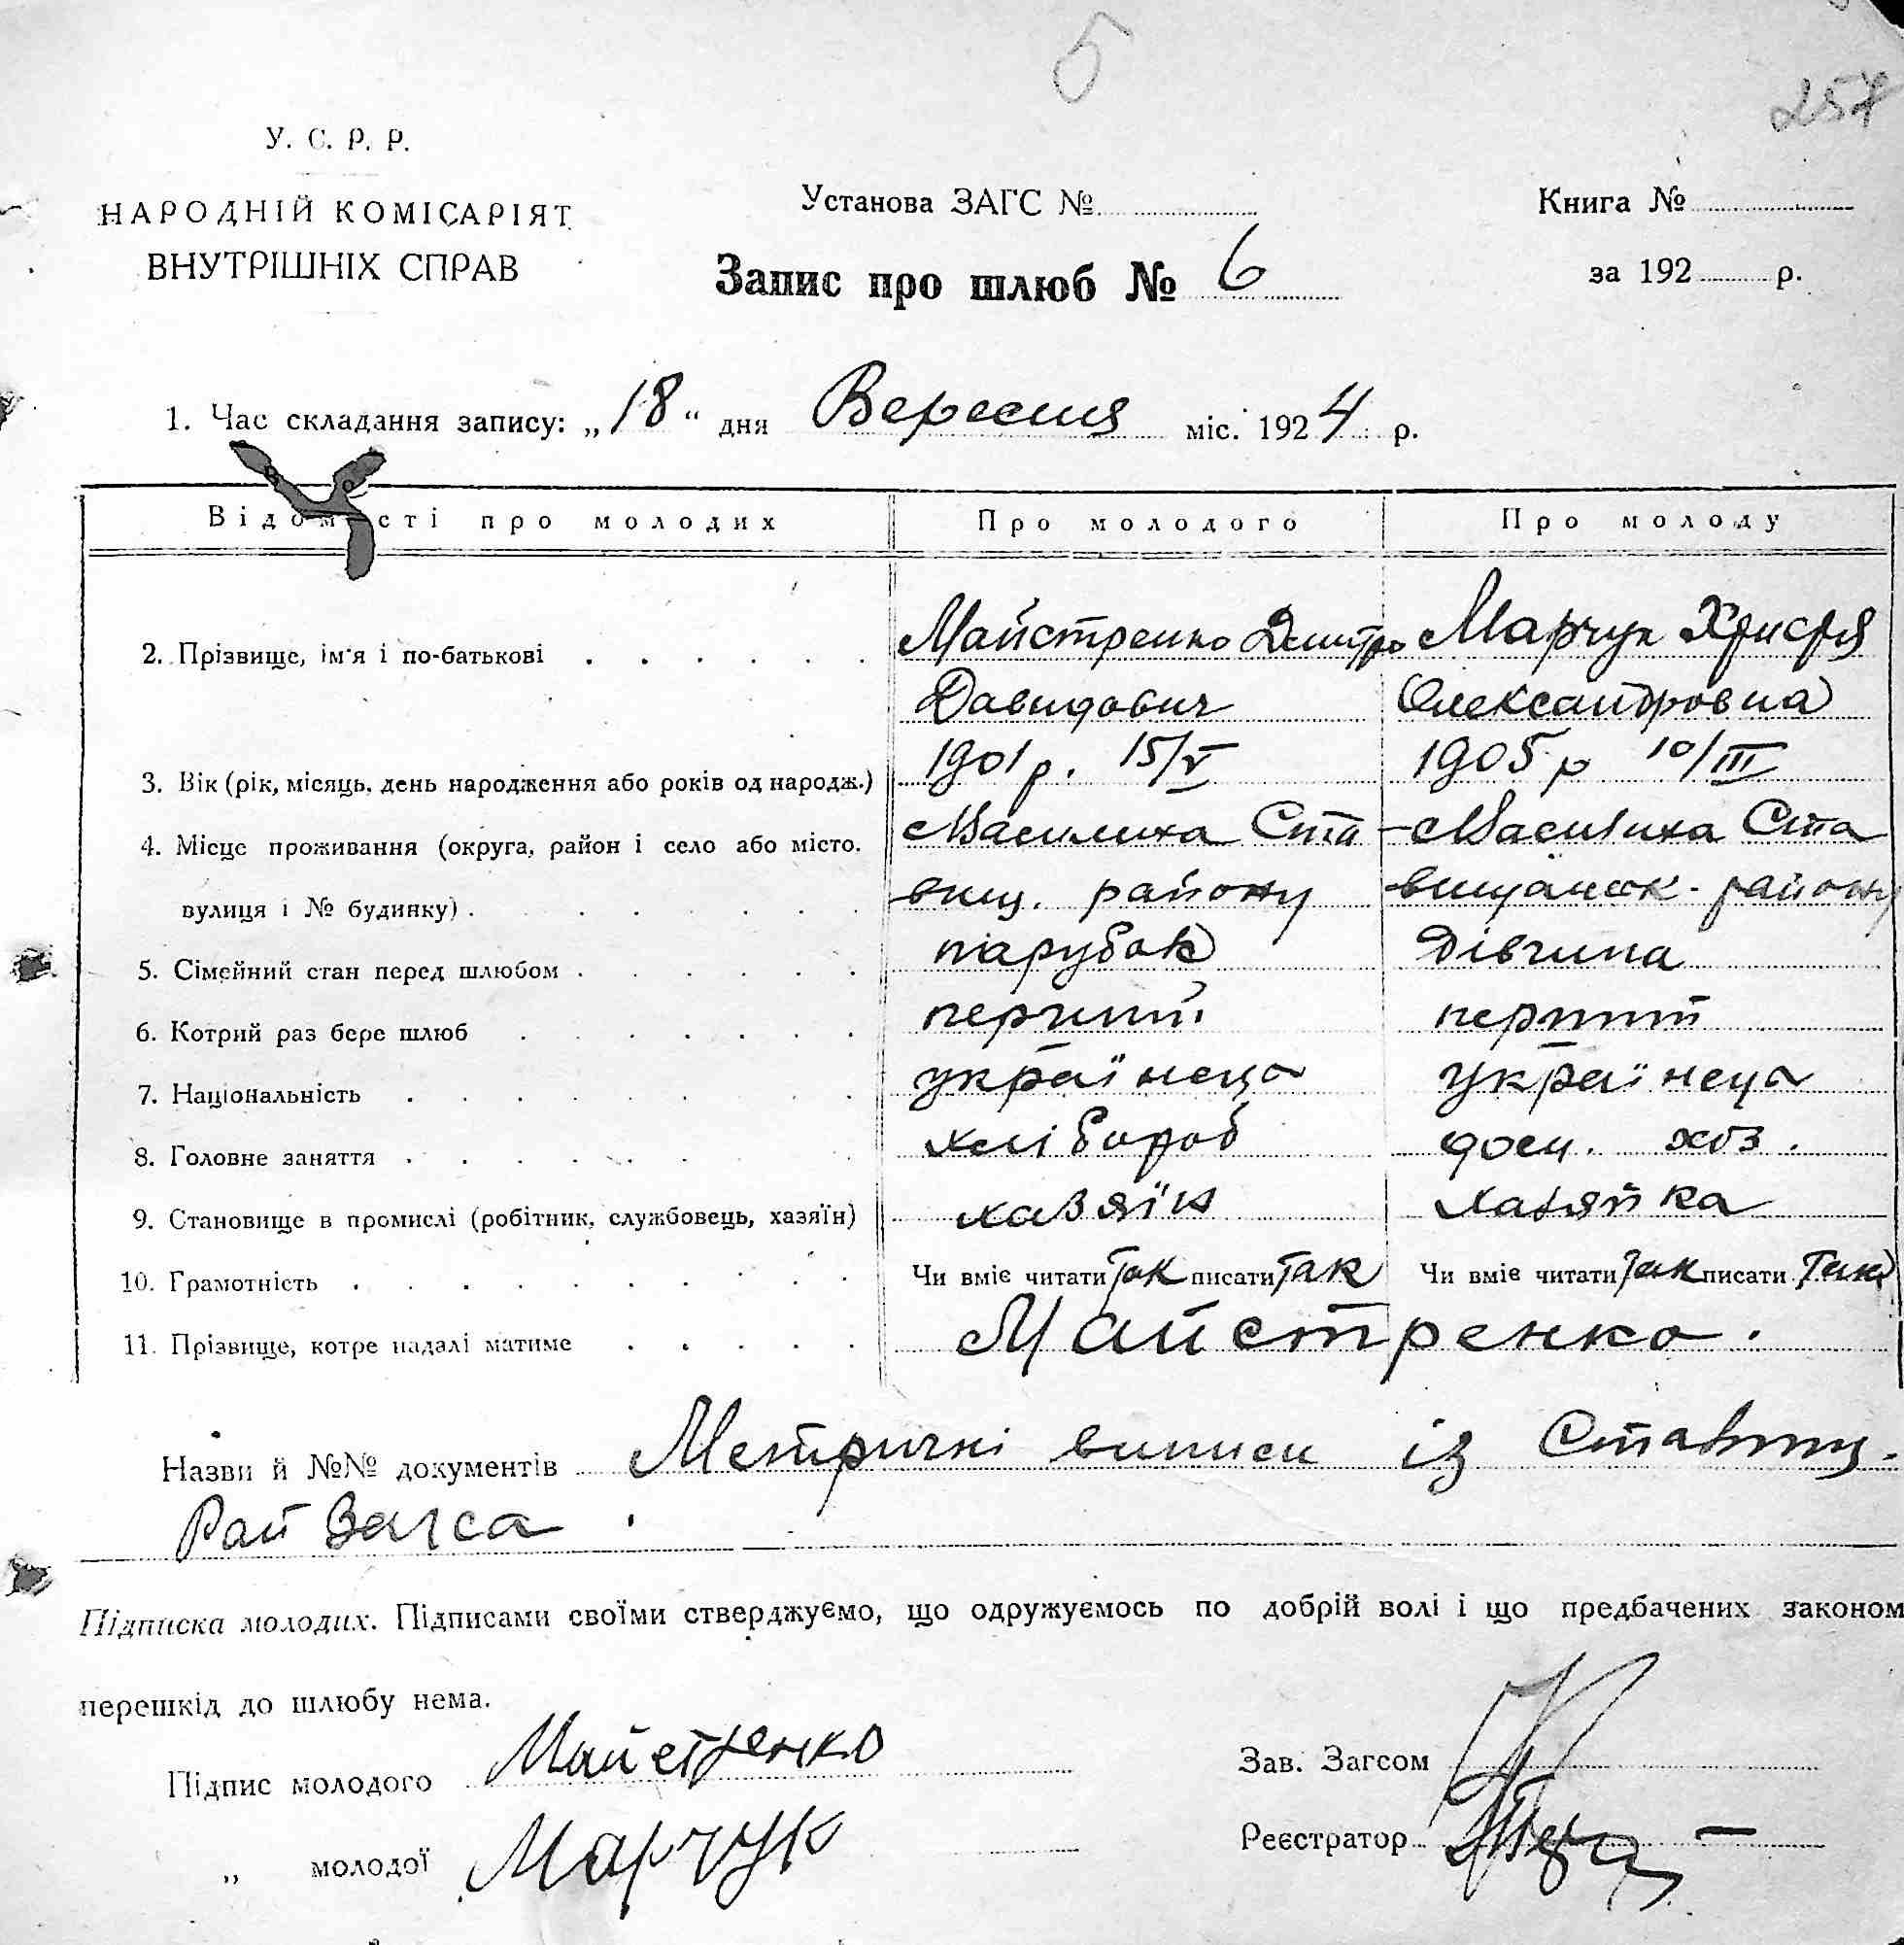 5
257
У. С. Р. Р.
НАРОДНІЙ КОМІСАРІЯТ
ВНУТРІШНІХ СПРАВ
Установа ЗАГС №
Книга №
Запис про шлюб № 6
за 192 р.
1. Час складання запису: „18“ дня Вересня міс. 1924 р.
Відомості про молодих Про молодого Про молоду
2. Прізвище, ім'я і по-батькові Майстренко Дмитро Марчук Христя
Давидович Олександровна
3. Вік (рік, місяць, день народження або років од народж.) 1901 р. 15/V 1905 р 10/III
4. Місце проживання (округа, район і село або місто, Василиха Ста Василиха Ста
вулиця і № будинку) вищ. району вищанск. району
5. Сімейний стан перед шлюбом парубок дівчина
6. Котрий раз бере шлюб перший перший
7. Національність українець українець
8. Головне заняття хлібороб дом. хоз.
9. Становище в промислі (робітник, службовець, хазяїн) хазяїн хазяйка
10. Грамотність Чи вміє читати так писати так Чи вміє читати так писати так
11. Прізвище, котре надалі матиме Майстренко.
Назви й №№ документів Метричні виписи із Ставищ.
Рай Загса.
Підписка молодих. Підписами своїми стверджуємо, що одружуємось по добрій волі і що предбачених законом
перешкід до шлюбу нема.
Підпис молодого Майстренко
Зав. Загсом
„ молодої Марчук
Реєстратор